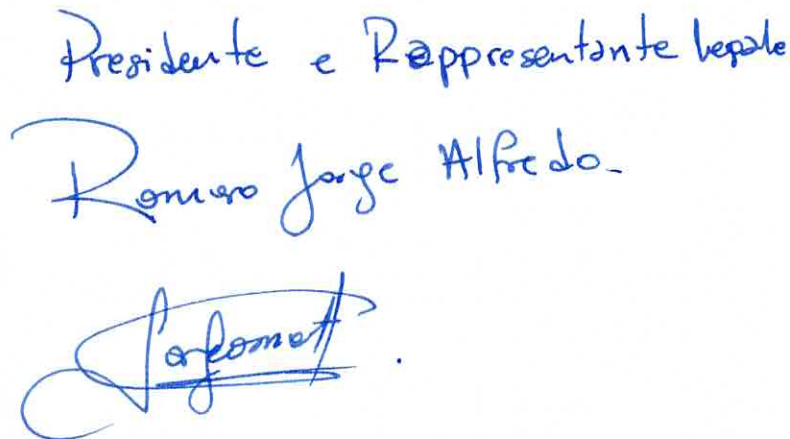 Presidente e Rappresentante legale
Romero Jorge Alfredo-